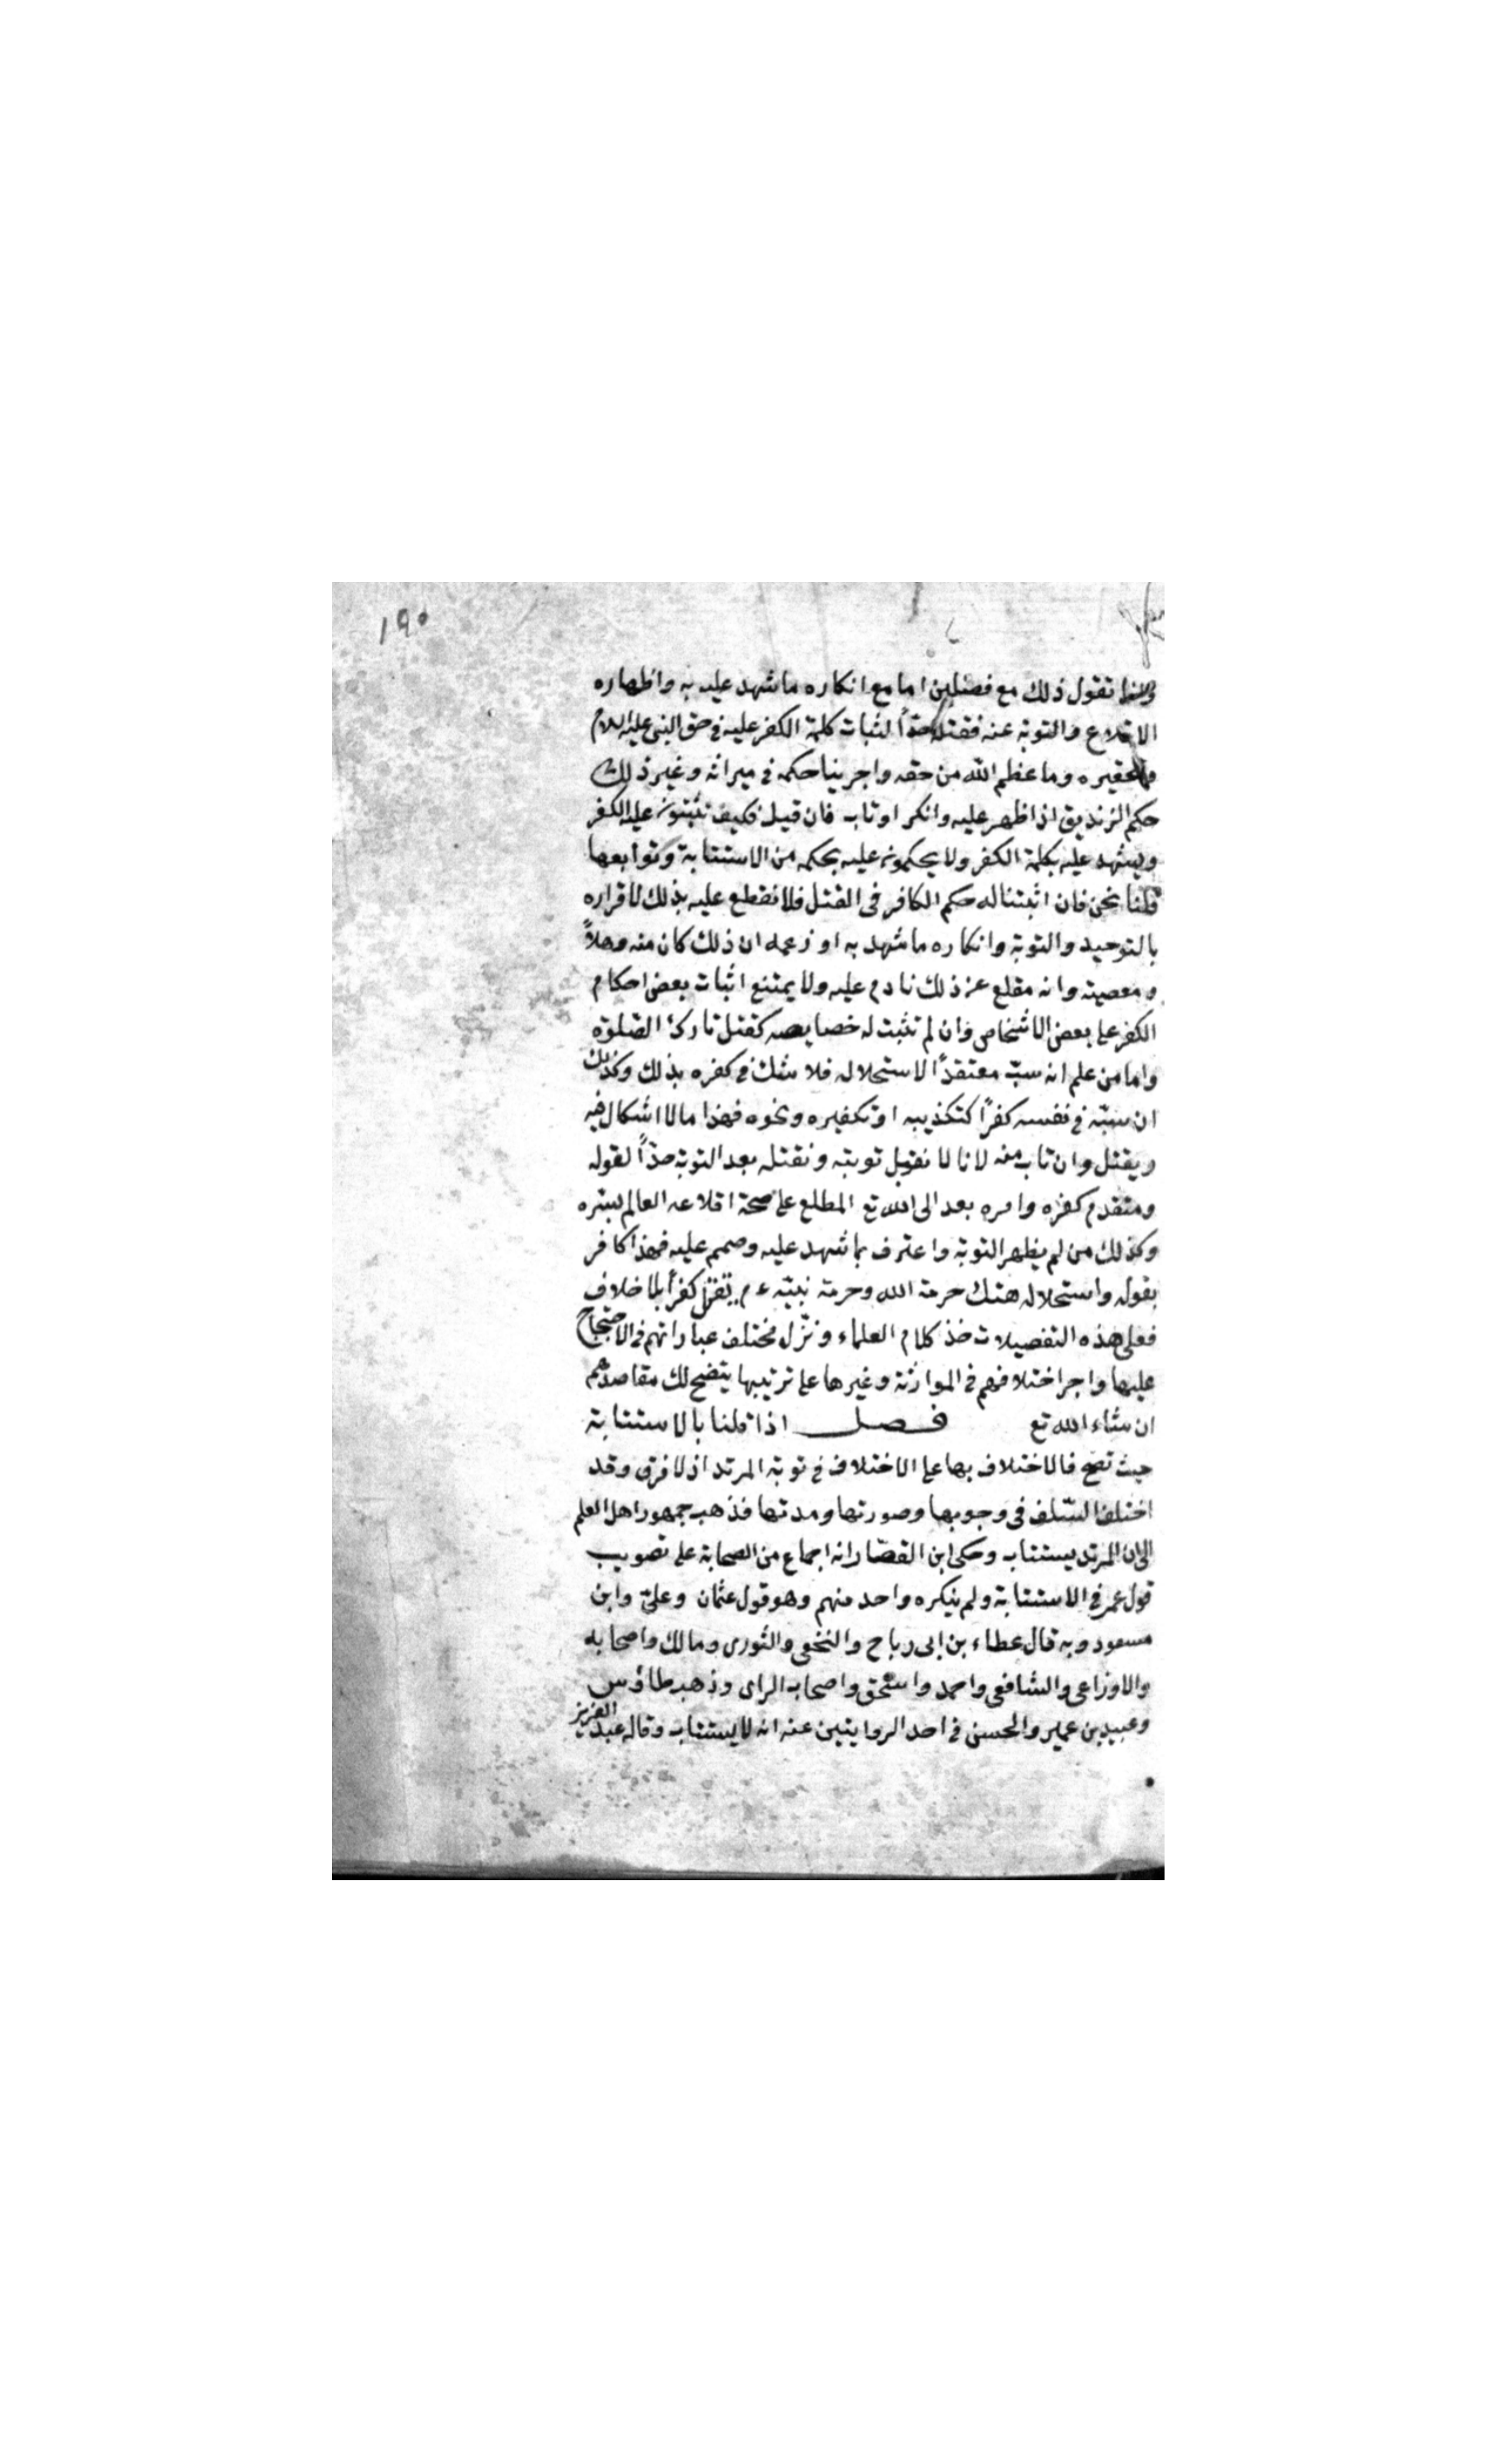 ١٩٥
وانما نقول ذلك مع فصلين اما مع انكاره ما شهد عليه به واظهاره
الاقلاع والتوبة عنه فنقتله حدّاً لثبات كلمة الكفر عليه في حق النبي عليه السلام
وتحقيره وما عظم الله من حقه واجرينا حكمه في ميراثه وغير ذلك
حكم الزنديق اذا ظهر عليه وانكر او تاب فان قيل فكيف تثبتون عليه الكفر
ويشهد عليه بكلمة الكفر ولا يحكمون عليه بحكمه من الاستتابة وتوابعها
قلنا نحن فان اثبتنا له حكم الكافر في القتل فلا نقطع عليه بذلك لاقراره
بالتوحيد والتوبة وانكاره ما شهد به او زعمه ان ذلك كان منه وهلاً
ومعصية وانه مقلع عن ذلك نادم عليه ولا يمتنع اثبات بعض احكام
الكفر على بعض الاشخاص وان لم تثبت له خصايصه كقتل تارك الصلوة
واما من علم انه سبّه معتقدًا لاستحلاله فلا شك في كفره بذلك وكذلك
ان سبّه في نفسه كفرًا كتكذيبه او تكفيره ونحوه فهذا ما لا اشكال فيه
ويقتل وان تاب منه لانا لا نقبل توبته ونقتله بعد التوبة حدّاً لقوله
ومتقدم كفره وامره بعد الى الله تع المطلع على صحة اقلاعه العالم بسره
وكذلك من لم يظهر التوبة واعترف بما شهد عليه وصمم عليه فهذا كافر
بقوله واستحلاله هتك حرمة الله وحرمة نبيّه ءم يقتل كفراً بلا خلاف
فعلى هذه التفصيلات خذ كلام العلماء ونزّل مختلف عباراتهم في الاحتجاج
عليها واجر اختلافهم في الموازنة وغيرها على ترتيبها يتضح لك مقاصدهم
ان شاء الله تع فصل اذا قلنا بالاستتابة
حيث تصح فالاختلاف بها على الاختلاف في توبة المرتد اذ لا فرق وقد
اختلف السّلف في وجوبها وصورتها ومدتها فذهب جمهور اهل العلم
الى ان المرتد يستتاب وحكى ابن القصّار انه اجماع من الصحابة على تصويب
قول عمر في الاستتابة ولم ينكره واحد منهم وهو قول عثمان وعليّ وابن
مسعود وبه قال عطاء بن ابى رباح والنخعى والثورى ومالك واصحابه
والاوزاعى والشافعى واحمد واسحق واصحاب الراى وذهب طاؤس
وعبيد بن عمير والحسن في احد الروايتين عنه انه لا يستتاب وقاله عبد العزيز